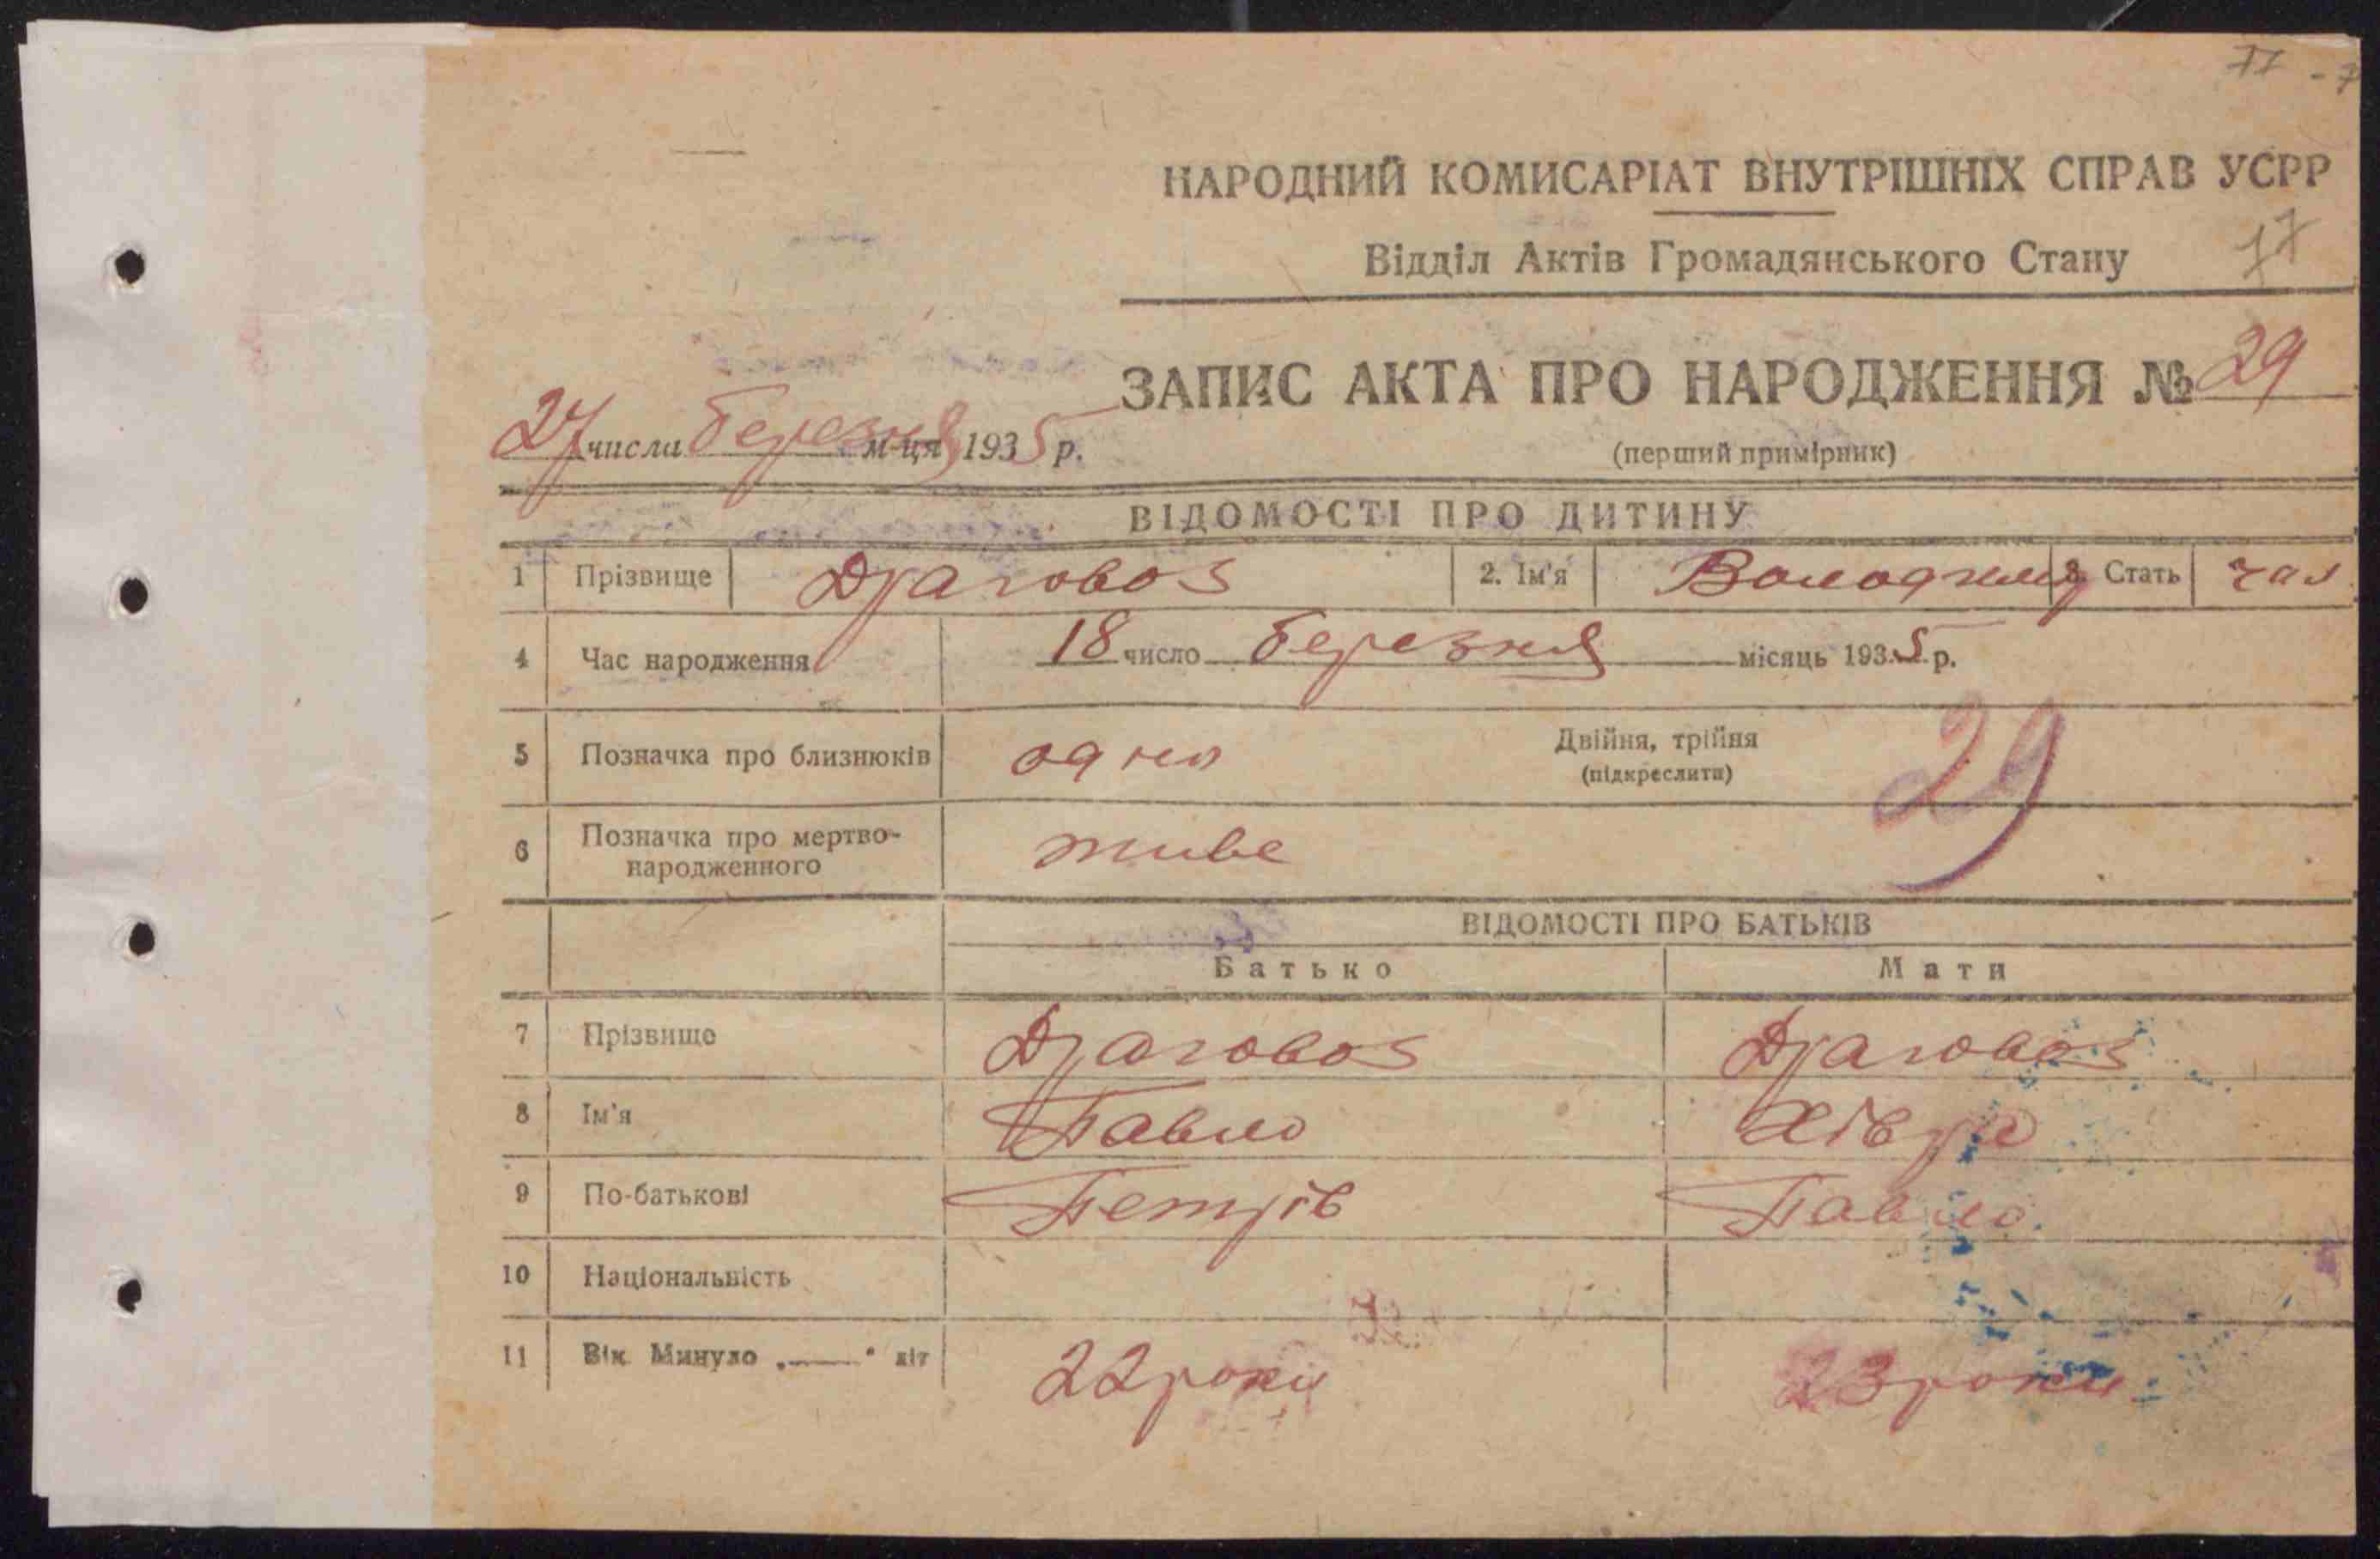 77 - 7
НАРОДНИЙ КОМИСАРІАТ ВНУТРІШНІХ СПРАВ УСРР
Відділ Актів Громадянського Стану 17
ЗАПИС АКТА ПРО НАРОДЖЕННЯ № 29
27 числа березня м-ця 1935 р.
(перший примірник)
ВІДОМОСТІ ПРО ДИТИНУ
1 Прізвище Драговоз 2. Ім'я Володимир 3. Стать чол
4 Час народження 18 число березня місяць 1935 р.
5 Позначка про близнюків одно Двійня, трійня
(підкреслити)
29
6 Позначка про мертво-
народженного живе
ВІДОМОСТІ ПРО БАТЬКІВ
Батько Мати
7 Прізвище Драговоз Драговоз
8 Ім'я Павло Хівря
9 По-батькові Петрів Павло.
10 Національність
11 Вік Минуло „——" літ 22 роки 23 роки